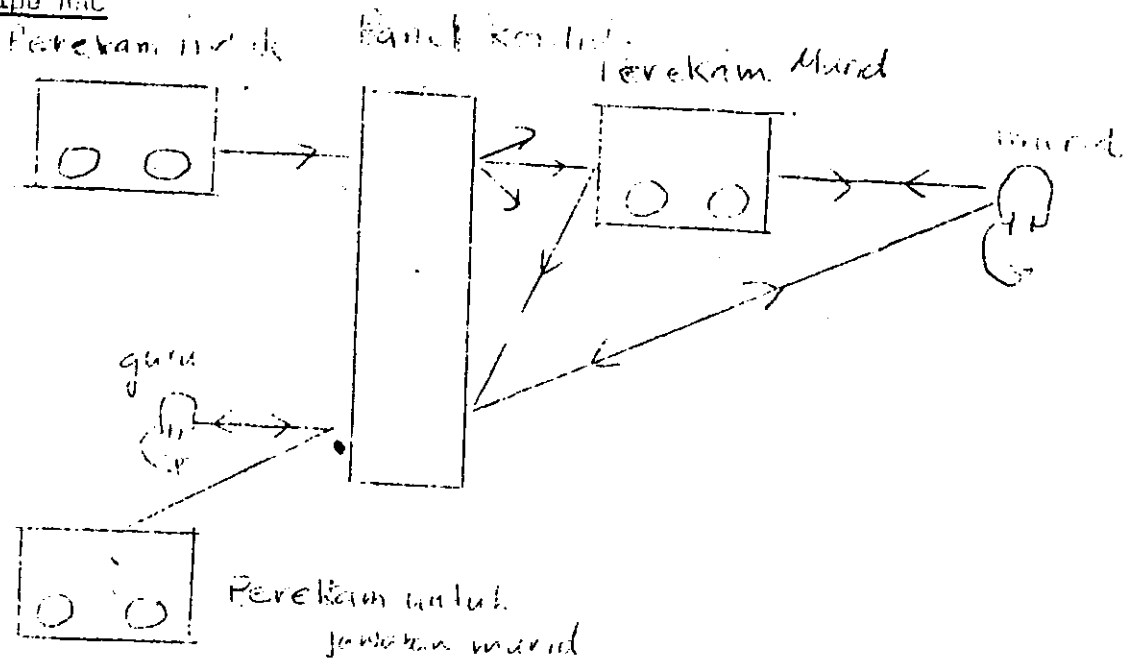 Perekam induk
Panel kontrol
Perekam Murid
murid
guru
Perekam untuk
jawaban murid